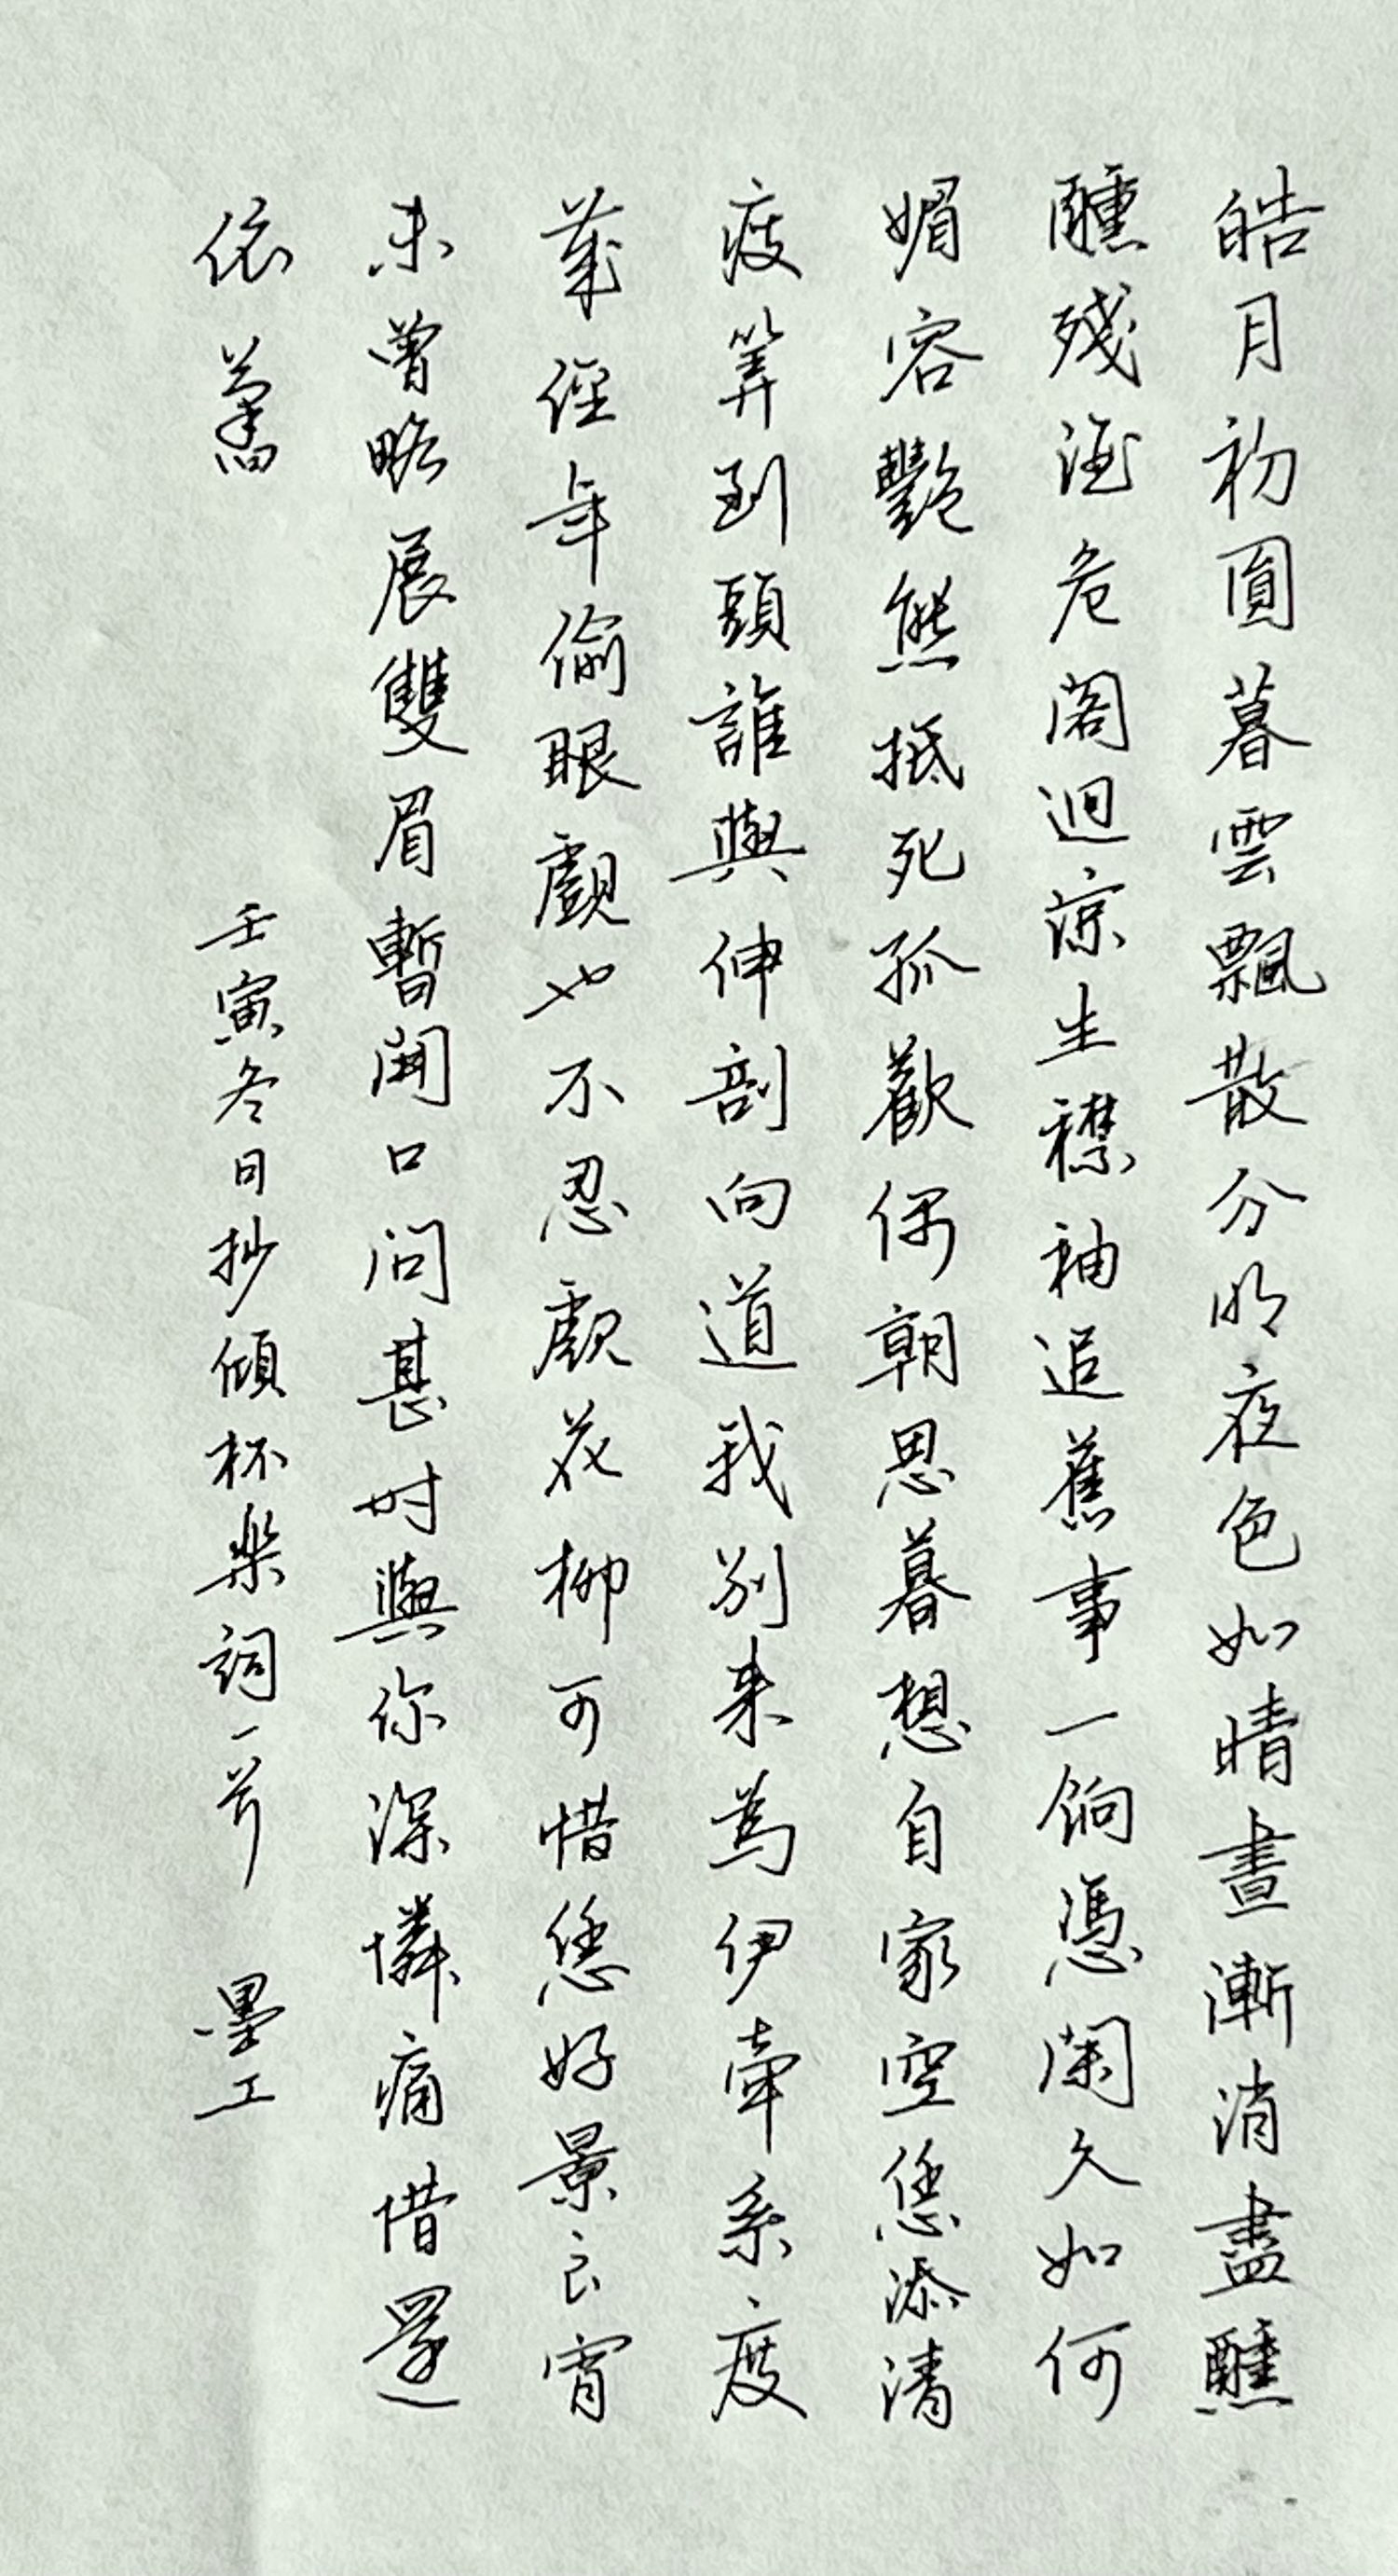 皓月初圓暮雲飄散分明夜色如晴晝漸消盡醺
醺殘酒危閣迥涼生襟袖追舊事一餉憑闌久如何
媚容艷態抵死孤歡偶朝思暮想自家空恁添清
瘦筭到頭誰與伸剖向道我別来為伊牽系度
歲經年偷眼覷也不忍覷花柳可惜恁好景良宵
未曾略展雙眉暫開口問甚时與你深憐痛惜還
依舊
壬寅冬日抄傾杯樂詞一首 墨工